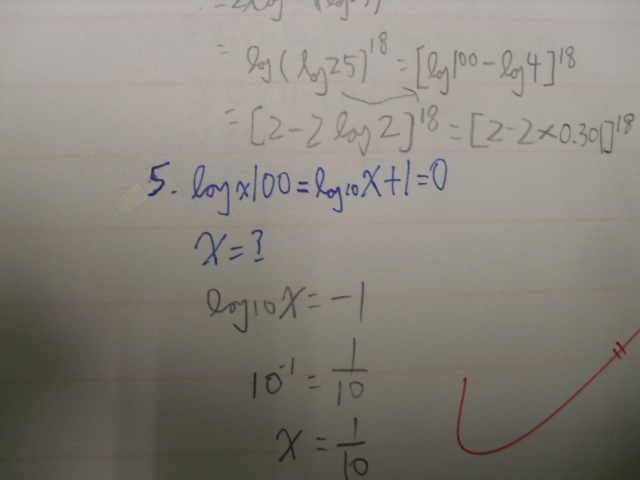 = log(log25)^18 = [log100 - log4]^18
= [2 - 2 log 2]^18 = [2 - 2 × 0.301]^18
5. log_x 100 = log_10 X + 1 = 0
X = ?
log_10 X = -1
10^-1 = 1/10
X = 1/10